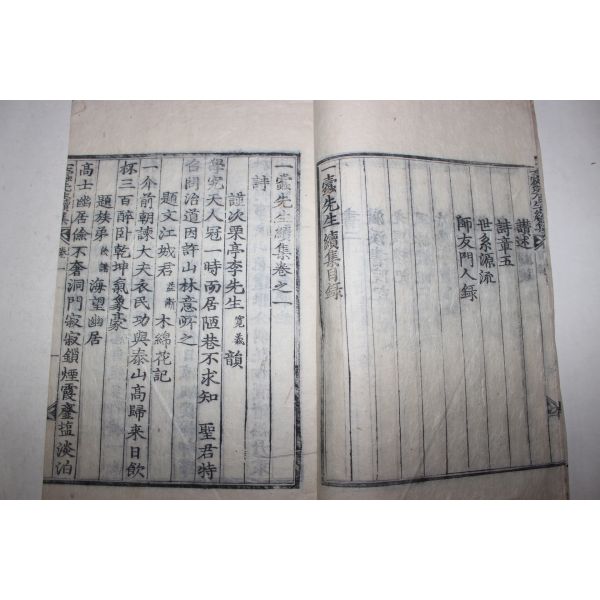 讃述
詩章五
世系源流
師友門人録
一蠹先生續集目録
一蠹先生續集卷之一
詩
謹次栗亭李先生寬義韻
學究天人冠一時而居陋巷不求知 聖君特
召問治道因許山林意所之
題文江城君益漸木綿花記
一介前朝諫大夫衣民功與泰山高歸來日飮
杯三百醉卧乾坤氣象豪
題族弟 海望幽居
高士幽居儉不奢洞門寂寂鎖煙霞虀塩淡泊